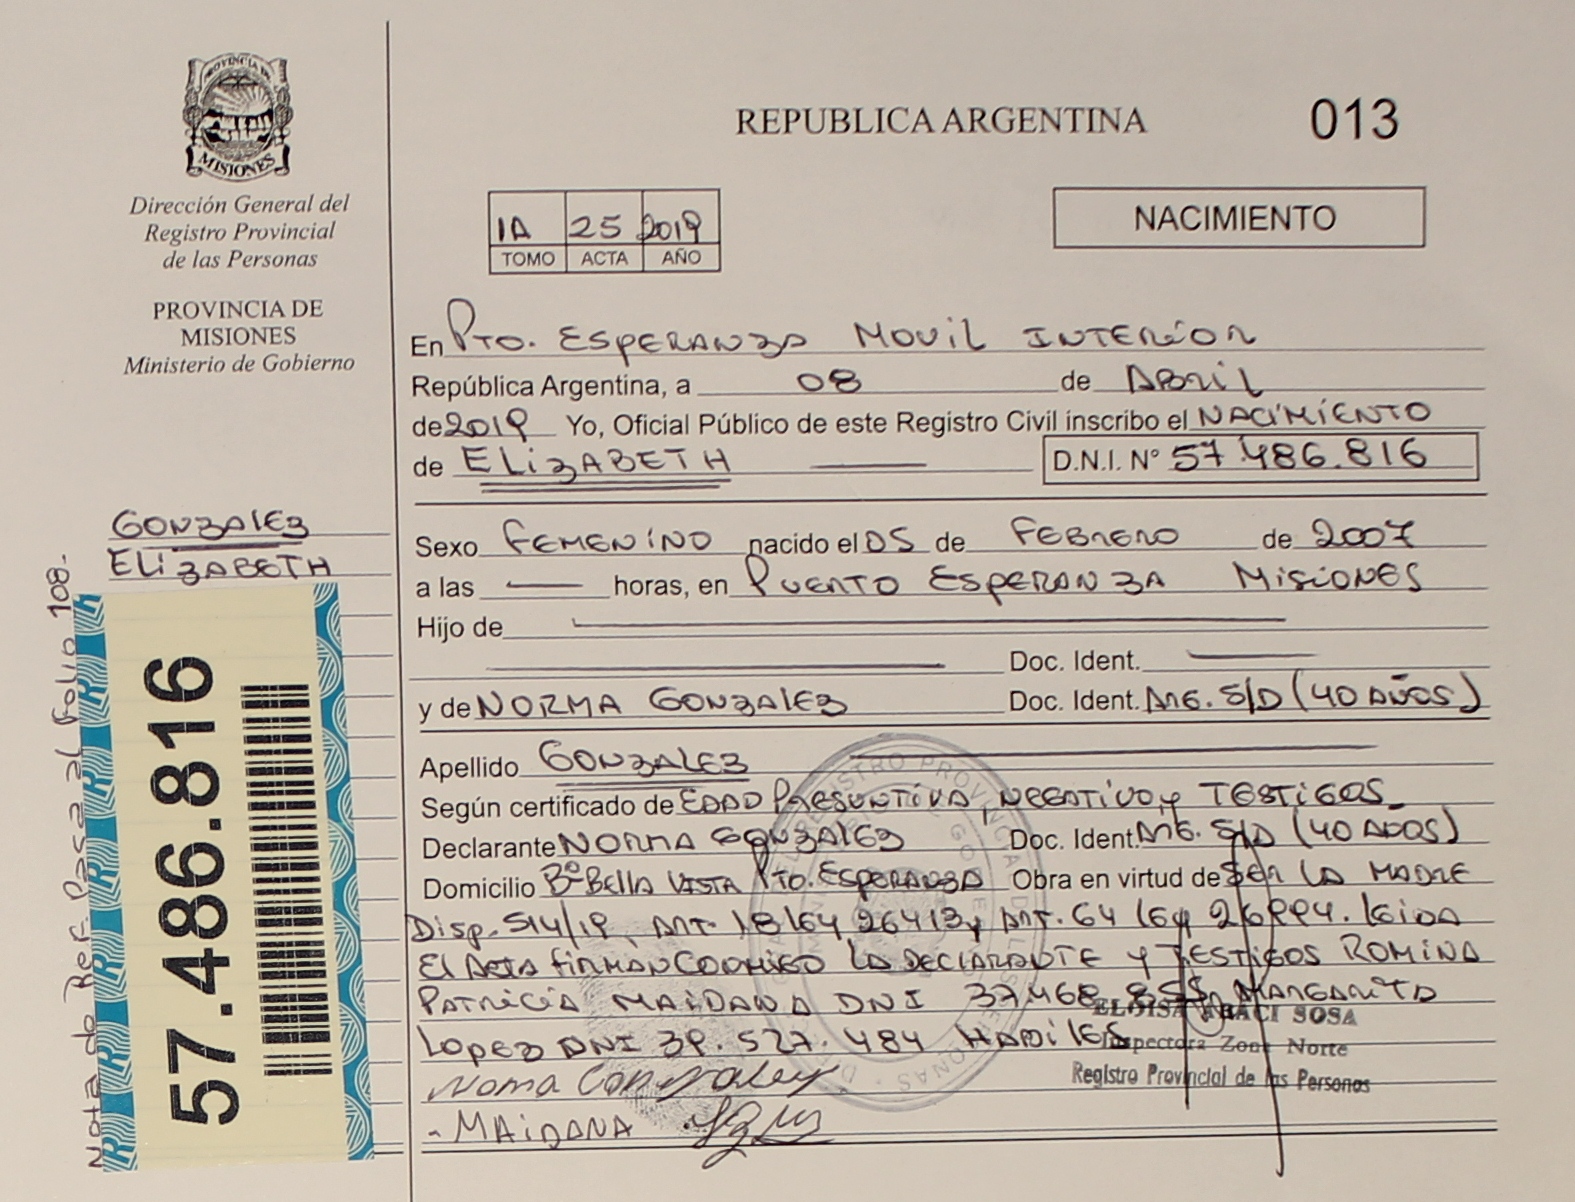 PROVINCIA DE
MISIONES
Dirección General del
Registro Provincial
de las Personas
PROVINCIA DE
MISIONES
Ministerio de Gobierno
GONZALEZ
ELIZABETH
Nota de Ref. Pasa al folio 108-
57.486.816
REPUBLICA ARGENTINA
013
1A 25 2019
TOMO ACTA AÑO
NACIMIENTO
En Pto. ESPERANZA MOVIL INTERIOR
República Argentina, a 08 de ABRIL
de 2019 Yo, Oficial Público de este Registro Civil inscribo el NACIMIENTO
de ELIZABETH D.N.I. N° 57.486.816
Sexo FEMENINO nacido el 05 de FEBRERO de 2007
a las horas, en PUERTO ESPERANZA MISIONES
Hijo de
Doc. Ident.
y de NORMA GONZALEZ Doc. Ident. ARG. S/D (40 AÑOS)
Apellido GONZALEZ
Según certificado de EDAD PRESUNTIVA, NEGATIVO y TESTIGOS.
Declarante NORMA GONZALEZ Doc. Ident. ARG. S/D (40 AÑOS)
Domicilio B° BELLA VISTA Pto. ESPERANZA Obra en virtud de SER LA MADRE
Disp. 514/19, ART. 18 LEY 26413 y ART. 64 LEY 26994. LEIDA
El ACTA FIRMAN CONMIGO LA DECLARANTE Y TESTIGOS ROMINA
PATRICIA MAIDANA DNI 37.468. MARGARITA
LOPEZ DNI 39.527.484 HABILES
ELOISA SOSA
Inspectora Zona Norte
Registro Provincial de las Personas
Norma Gonzalez
- MAIDANA